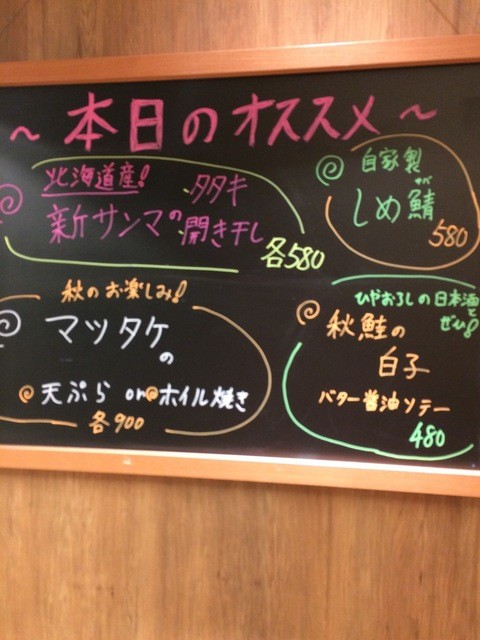 ~ 本日のオススメ ~
北海道産!
新サンマの
・タタキ
・開き干し
各580
自家製
しめ鯖
580
秋のお楽しみ!
マツタケ
の
天ぷら or ホイル焼き
各900
ひやおろしの日本酒と
ぜひ!
秋鮭の
白子
バター醤油ソテー
480